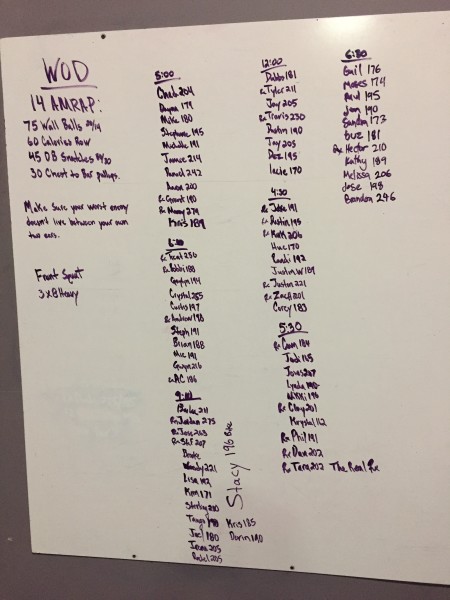 WOD
14 AMRAP:
75 Wall Balls 20/14
60 Calories Row
45 DB Snatches
30 Chest to Bar pullups.
Make sure your worst enemy
doesn't live between your own
two ears.
Front Squat
3x8 Heavy
5:00
Chad 204
Dayna 179
Mike 180
Stephanie 195
Michelle 191
Janice 214
Daniel 242
Aaron 200
Rx Grant 180
Rx Manny 279
Kris 189
256
Rx Bobbi 188
194
Crystal 255
Curtis 197
Rx Andrew 198
Steph 191
Brian 188
Mic 191
Gwyn 216
AC 186
211
Rx Jordan 275
Rx Jess 263
207
Woody 221
Lisa 192
Kim 171
Shelley 210
Tango
Joel 180
205
205
Stacy 196 Bike
Kris 185
Darin 190
12:00
Dobbs 181
Rx Tyler 211
Jay 205
Rx Travis 230
Dustin 190
Jay 205
Dez 195
170
4:30
Rx Jake 191
Rx Dustin 195
Rx Mark 206
Hue 170
Randi 192
Justin W 189
Rx Justin 221
Rx Zach 201
Corey 183
5:30
Rx 184
Jodi 165
Lynda
Nikki 196
Rx Clay 201
Krystal 162
Rx Phil 191
Rx Dan 202
Rx Tara 202 The Real Rx
6:30
Gail 176
Moses 174
Paul 195
Jon 190
Sandra 173
Guz 181
Rx Hector 210
Kathy 189
Melissa 206
Jose 198
Brandon 246